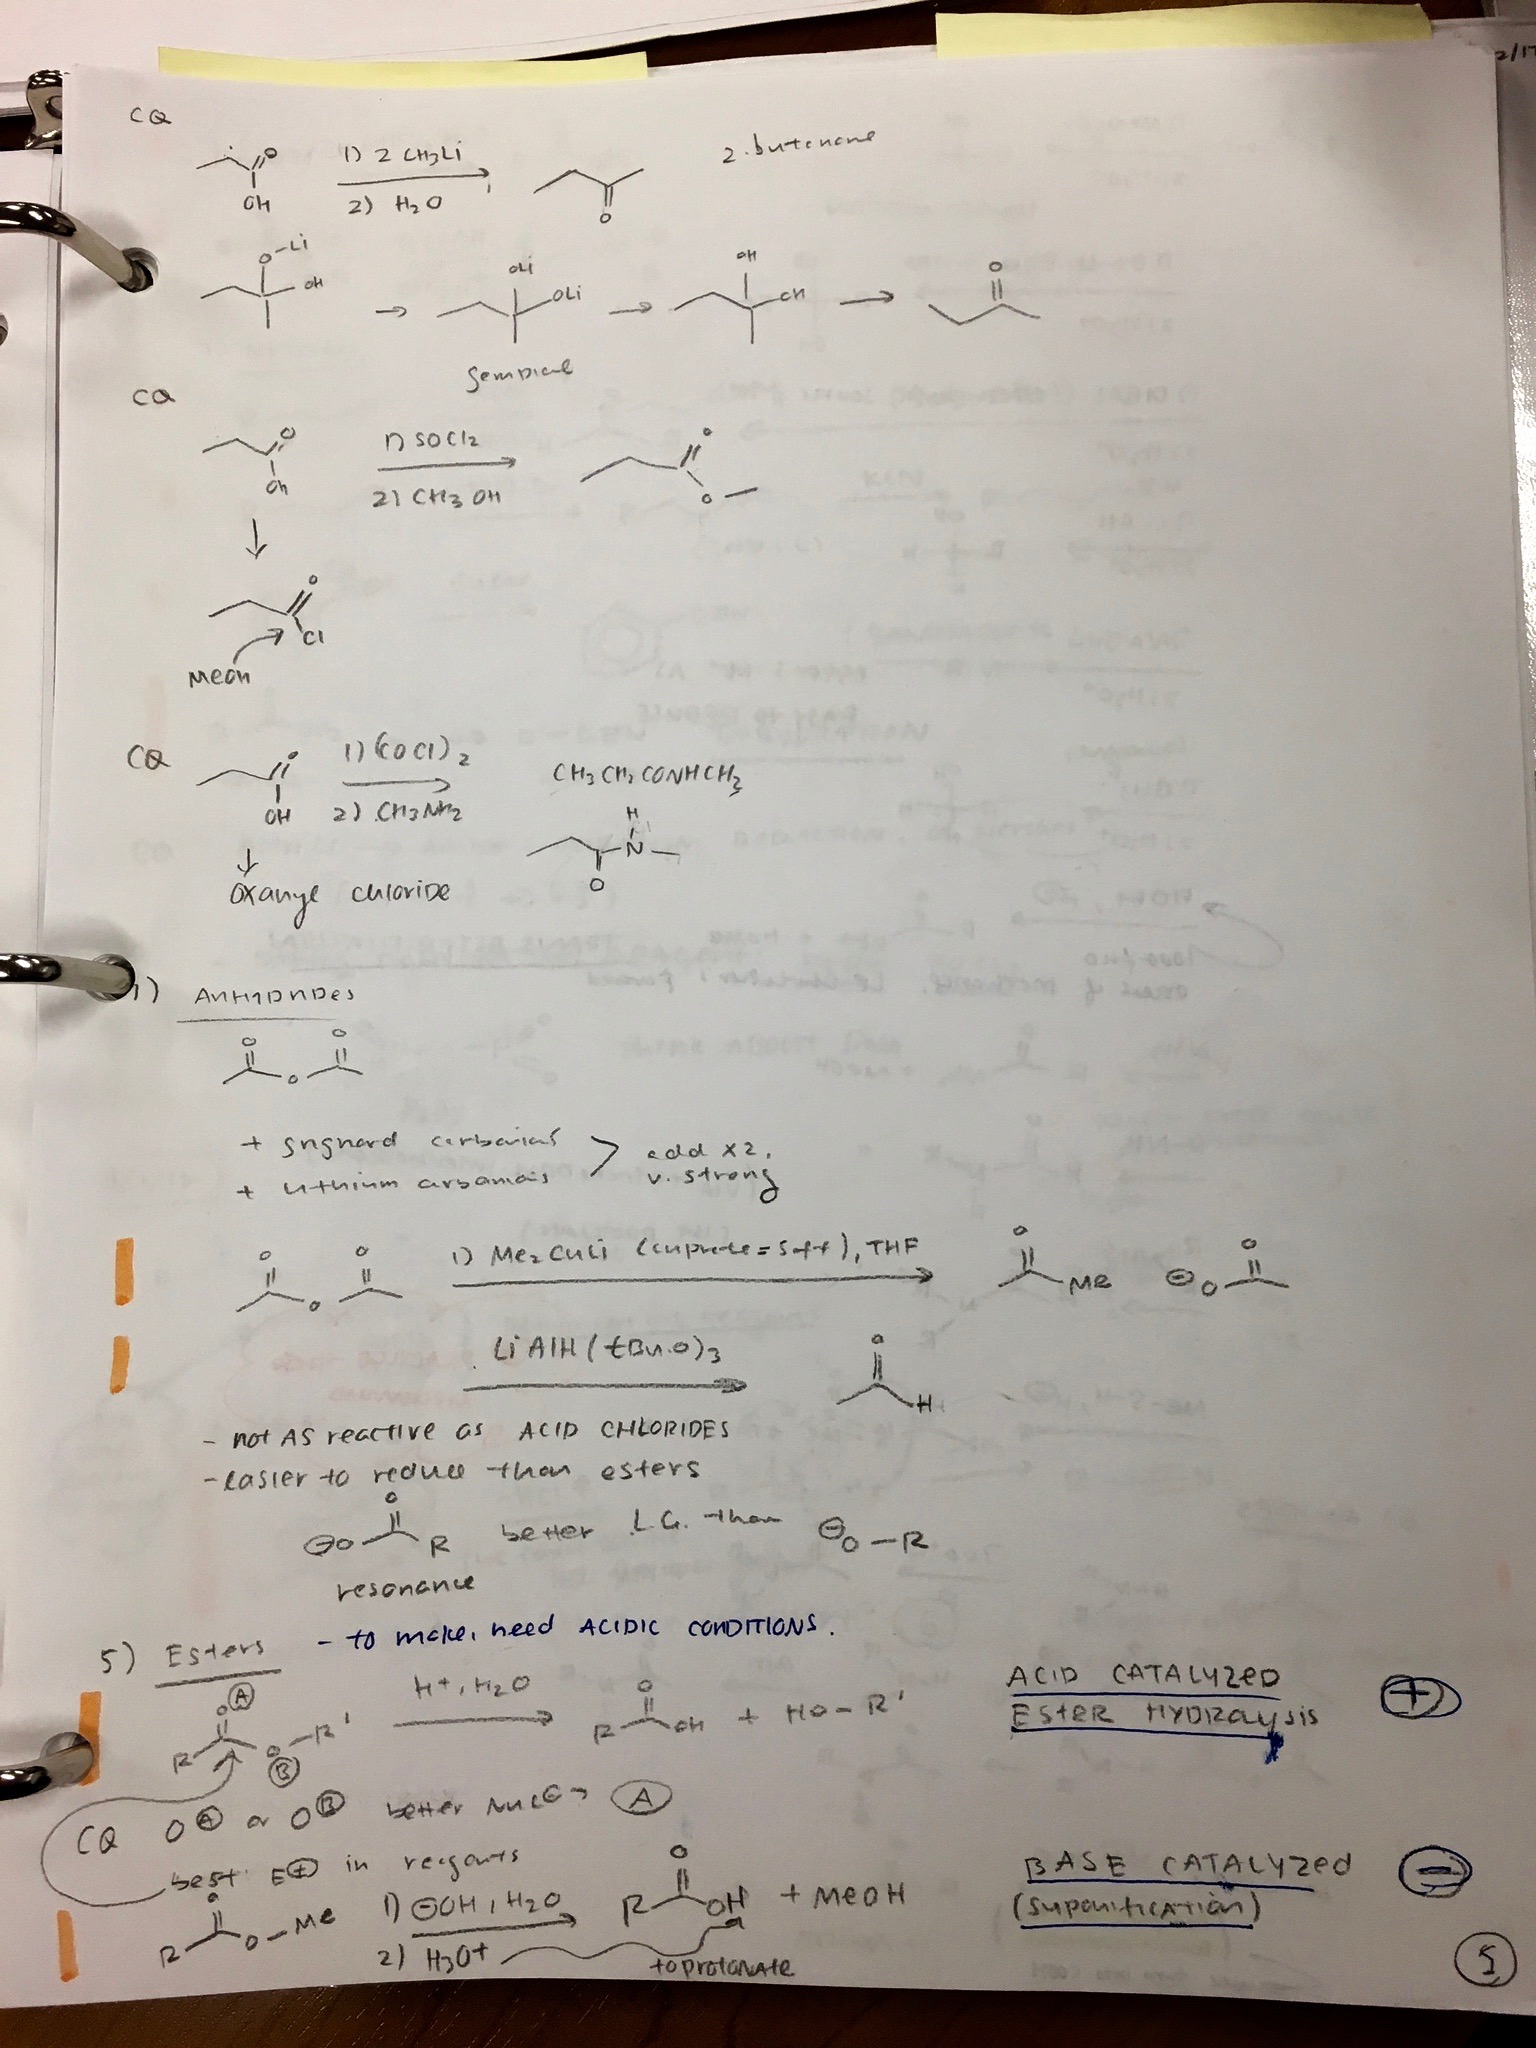 2/17
CQ
O
OH
1) 2 CH3Li
2) H2O
O
2-butanone
O-Li
OH
OLi
OLi
OH
OH
O
CQ
O
OH
1) SOCl2
2) CH3OH
O
O
O
Cl
MeOH
CQ
O
OH
1) (COCl)2
2) CH3NH2
CH3CH2CONHCH3
H
N
O
chloride
ANHYDRIDES
O O
O
+ grignard
+ lithium
add x2,
v. strong
O O
O
1) Me2CuLi (cuprate = soft), THF
O
Me
O
⊖O
LiAlH(tBuO)3
O
H
- not AS reactive as ACID CHLORIDES
- easier to reduce than esters
⊖O O R better L.G. than ⊖O-R
resonance
5) Esters - to make, need ACIDIC CONDITIONS.
O Ⓐ
R O-R'
Ⓑ
H+, H2O
O
R OH + HO-R'
ACID CATALYZED
ESTER HYDROLYSIS
⊕
CQ O Ⓐ or O Ⓑ better Ⓐ
best E⊕ in
O
R O-Me
1) ⊖OH, H2O
2) H3O+
O
R OH + MeOH
to protonate
BASE CATALYZED
(saponification)
⊖
5